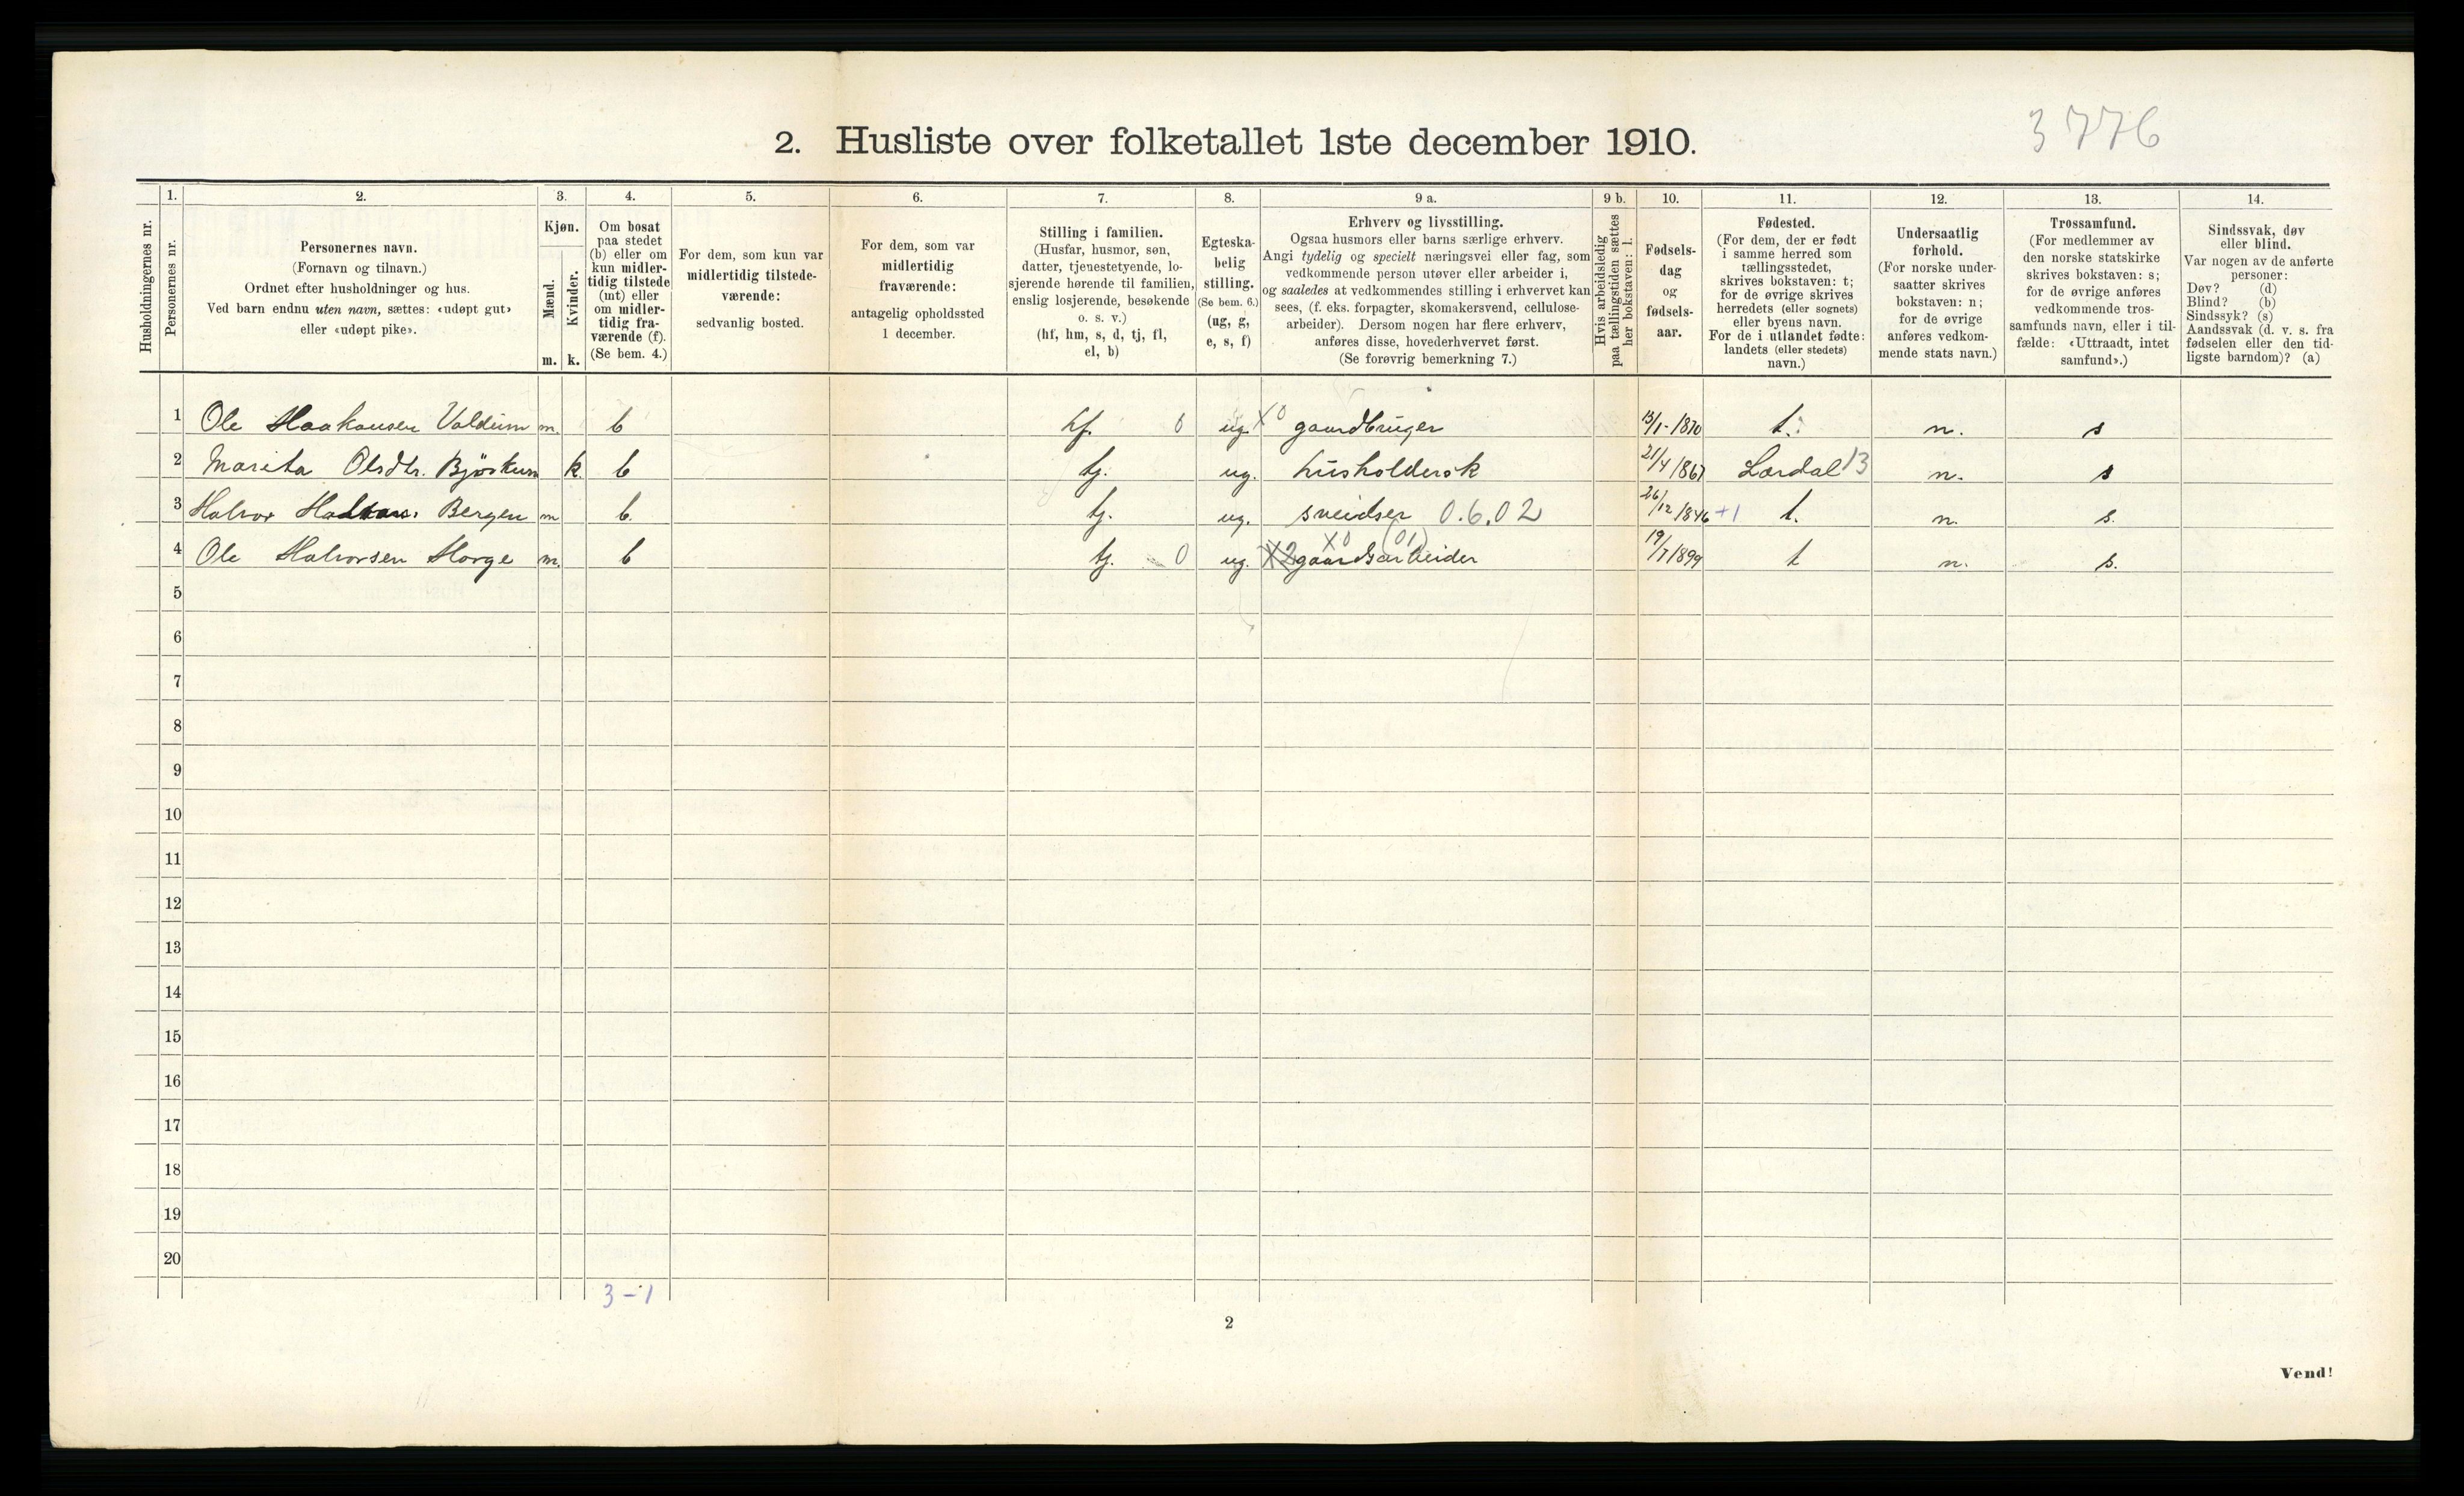 3776
2. Husliste over folketallet 1ste december 1910.
Husholdningernes nr.
1.
Personernes nr.
2.
Personernes navn.
(Fornavn og tilnavn.)
Ordnet efter husholdninger og hus.
Ved barn endnu uten navn, sættes: «udøpt gut»
eller «udøpt pike».
3.
Kjøn.
Mænd.
Kvinder.
m. k.
4.
Om bosat
paa stedet
(b) eller om
kun midler-
tidig tilstede
(mt) eller
om midler-
tidig fra-
værende (f).
(Se bem. 4.)
5.
For dem, som kun var
midlertidig tilstede-
værende:
sedvanlig bosted.
6.
For dem, som var
midlertidig
fraværende:
antagelig opholdssted
1 december.
7.
Stilling i familien.
(Husfar, husmor, søn,
datter, tjenestetyende, lo-
sjerende hørende til familien,
enslig losjerende, besøkende
o. s. v.)
(hf, hm, s, d, tj, fl,
el, b)
8.
Egteska-
belig
stilling.
(Se bem. 6.)
(ug, g,
e, s, f)
9 a.
Erhverv og livsstilling.
Ogsaa husmors eller barns særlige erhverv.
Angi tydelig og specielt næringsvei eller fag, som
vedkommende person utøver eller arbeider i,
og saaledes at vedkommendes stilling i erhvervet kan
sees, (f. eks. forpagter, skomakersvend, cellulose-
arbeider). Dersom nogen har flere erhverv,
anføres disse, hovederhvervet først.
(Se forøvrig bemerkning 7.)
9 b.
Hvis arbeidsledig
paa tællingstiden sættes
her bokstaven: l.
10.
Fødsels-
dag
og
fødsels-
aar.
11.
Fødested.
(For dem, der er født
i samme herred som
tællingsstedet,
skrives bokstaven: t;
for de øvrige skrives
herredets (eller sognets)
eller byens navn.
For de i utlandet fødte:
landets (eller stedets)
navn.)
12.
Undersaatlig
forhold.
(For norske under-
saatter skrives
bokstaven: n;
for de øvrige
anføres vedkom-
mende stats navn.)
13.
Trossamfund.
(For medlemmer av
den norske statskirke
skrives bokstaven: s;
for de øvrige anføres
vedkommende tros-
samfunds navn, eller i til-
fælde: «Uttraadt, intet
samfund».)
14.
Sindssvak, døv
eller blind.
Var nogen av de anførte
personer:
Døv? (d)
Blind? (b)
Sindssyk? (s)
Aandssvak (d. v. s. fra
fødselen eller den tid-
ligste barndom)? (a)
1 Ole Haakonsen Voldum m. b hf. 0 ug. X0 gaardbruger 13/1-1870 t. n. s
2 Marita Olsdtr. Bjørkum k. b tj. ug. husholdersk 21/4 1867 Lærdal 13 n. s
3 Halvor Bergen m b. tj. ug. sveidser 0.6.02 26/12 1846 +1 t. n. s.
4 Ole Halvorsen Horge m. b tj. 0 ug. X2 X0 (01) gaardsarbeider 19/7 1899 t n. s.
5
6
7
8
9
10
11
12
13
14
15
16
17
18
19
20
3-1
2
Vend!